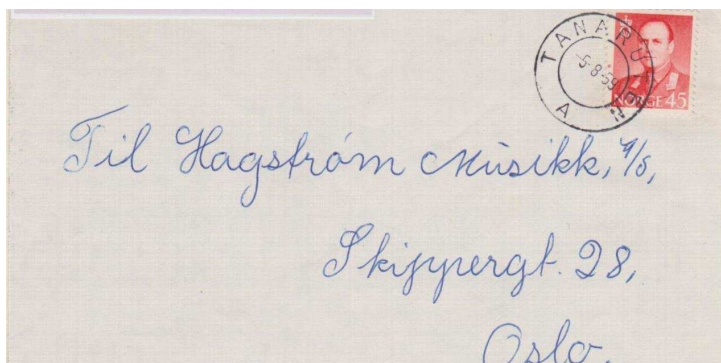 TANARUTEN A
-5-8-59
NORGE 45
Til Hagstróm Musikk, A/S,
Skippergt. 28,
Oslo.